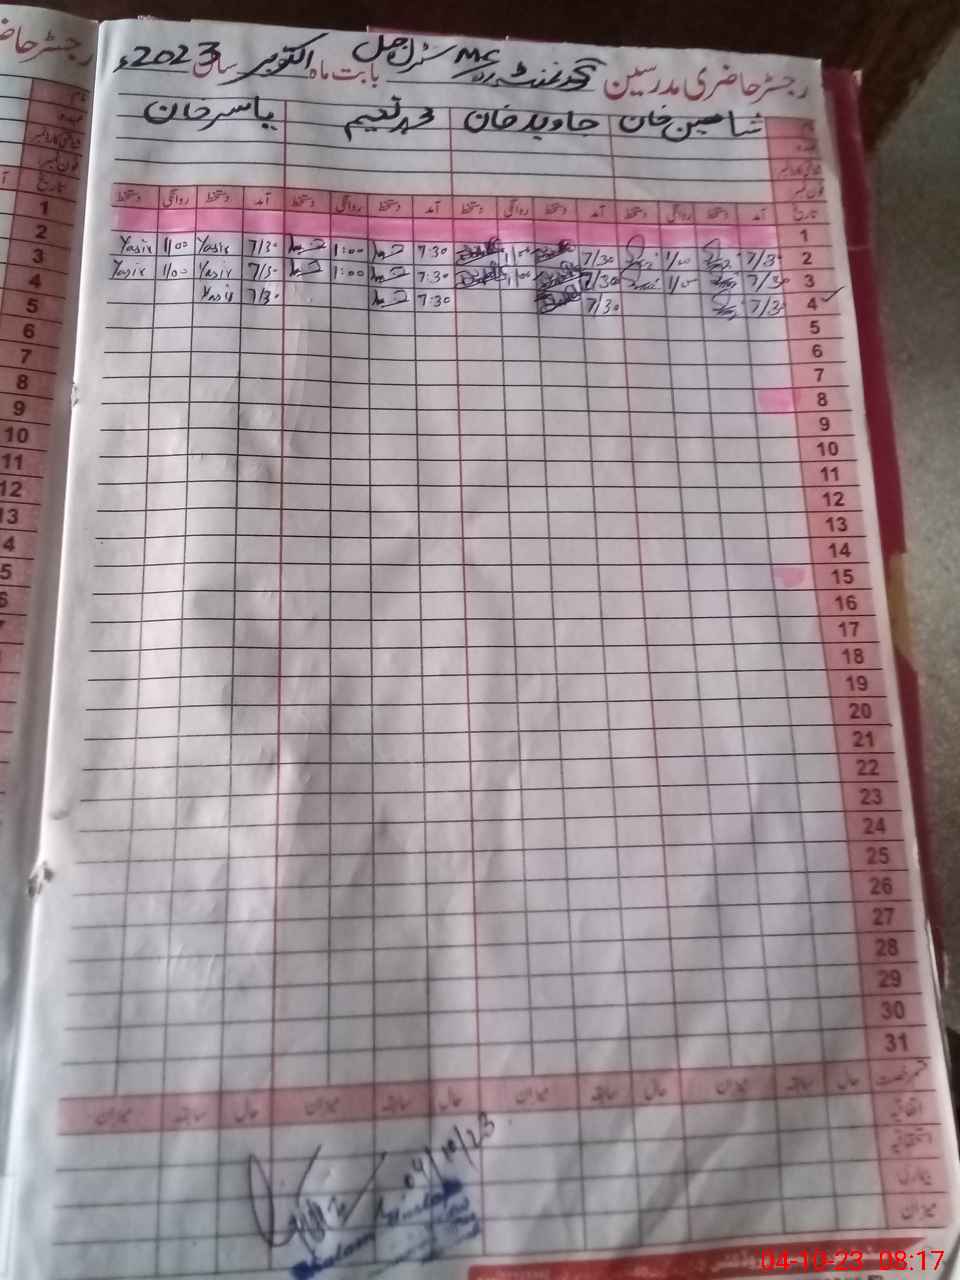 رجسٹر حاضری مدرسین گورنمنٹ MC سنٹرل جیل بابت ماہ اکتوبر سال 2023ء
شاھین خان جاوید خان محمد نعیم یاسر خان
نام
عہدہ
شناختی کارڈ نمبر
فون نمبر
تاریخ آمد دستخط روانگی دستخط آمد دستخط روانگی دستخط آمد دستخط روانگی دستخط آمد دستخط روانگی دستخط
1
2 7/30 1/00 7/30 1/00 7:30 1:00 7/30 Yasir 1/00 Yasir
3 7/30 1/00 7/30 1/00 7:30 1:00 7/30 Yasir 1/00 Yasir
4 7/30 7/30 7:30 7/30 Yasir
5
6
7
8
9
10
11
12
13
14
15
16
17
18
19
20
21
22
23
24
25
26
27
28
29
30
31
قسم رخصت حال سابقہ میزان حال سابقہ میزان حال سابقہ میزان حال سابقہ میزان
اتفاقیہ
استحقاقیہ
بیماری
میزان
04/10/23
04-10-23 08:17